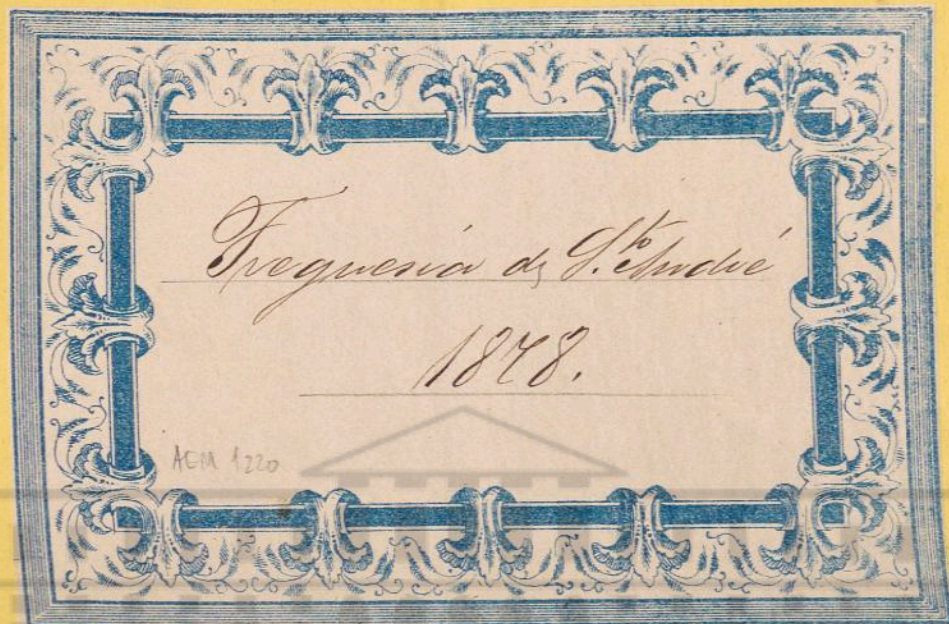 Freguesia de S.to André
1878.
AEM 1220